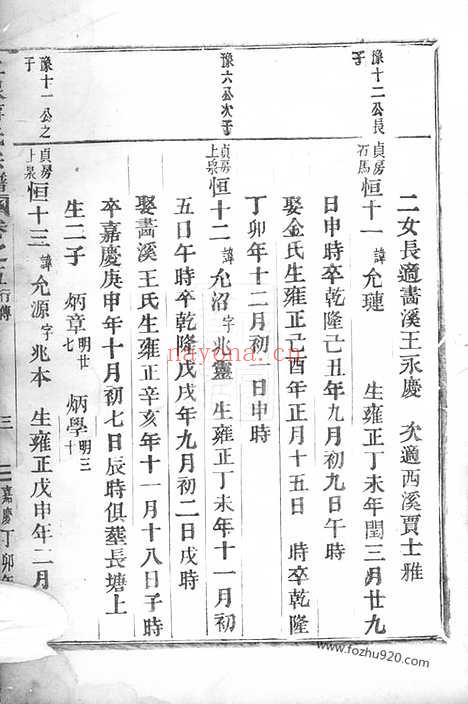 二女長適畵溪王永慶 次適西溪賈士雅
豫十二公長子
貞房石馬恒十一 諱允璉 生雍正丁未年閏三月廿九
日申時卒乾隆己丑年九月初九日午時
娶金氏生雍正己酉年正月十五日 時卒乾隆
丁卯年十二月初一日申時
豫六公次子
貞房上泉恒十二 諱允沼字兆靈 生雍正丁未年十一月初
五日午時卒乾隆戊戌年九月初二日戌時
娶畵溪王氏生雍正辛亥年十一月十八日子時
卒嘉慶庚申年十月初七日辰時俱葬長塘上
生二子 炳章明廿七 炳學明三十
豫十一公之子
貞房上泉恒十三 諱允源字兆本 生雍正戊申年二月
譜 卷之五行傳 三 嘉慶丁卯
nayona.cn
www.fozhu920.com